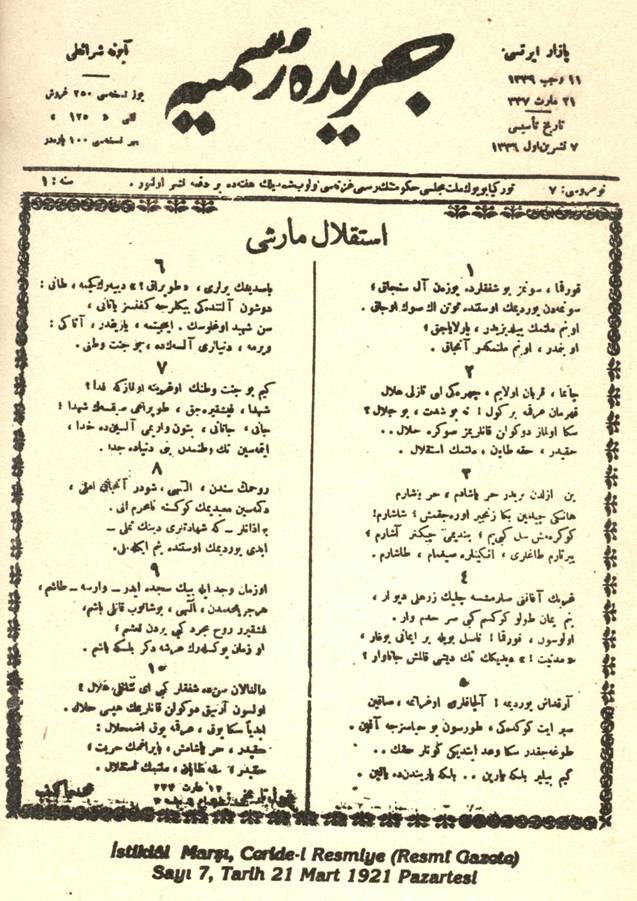 جريدهٔ رسميه
بازار ايرتسى
١١ رجب ١٣٣٩
٢١ مارت ٣٣٧
تاريخ تأسيسى
٧ تشرين اول ١٣٣٦
آبونه شرائطى
٢٥٠ غروش
» ١٢٥ »
نسخه‌سى ١٠٠ پاره‌در
نومروسى: ٧
توركيا بويوك ملت مجلسى حكومتنك رسمى غزته‌سى اولوب شمديلك هفته‌ده بر دفعه نشر اولنور.
سنه: ١
استقلال مارشى
١
قورقما ، سونمز بو شفقلرده يوزن آل سنجاق؛
سونمه‌دن يورديمك اوستنده توتن اك صوك اوجاق.
او بنم ملتمك ييلديزيدر، پارلاياجق؛
او بنمدر ، او بنم ملتمكدر آنجاق.
٢
چاتما ، قربان اولايم ، چهره‌كى اى نازلى هلال
قهرمان عرقمه بر كول! نه بو شدت ، بو جلال؟
سكا اولماز دوكولن قانلريمز صوكره حلال..
حقيدر ، حقه طاپان ، ملتمك استقلال.
٣
بن ازلدن بريدر حر ياشادم ، حر ياشارم
هانكى چيلغين بكا زنجير اوره‌جقمش؟ شاشارم!
كوكره‌مش سل كبى‌يم ؛ بنديمى چيكنر آشارم ؛
ييرتارم طاغلرى ، انكينلره صيغمام ، طاشارم.
٤
غربك آفاقنى صارمشسه چليك زرهلى ديوار ،
بنم ايمان طولو كوكسم كبى سر حدم وار.
اولوسون ، قورقما! ناصل بويله بر ايمانى بوغار ،
«مدنيت!» ديديكك تك ديشى قالمش جاناوار؟
٥
آرقداش! يورديمه آلچاقلرى اوغراتمه ، صاقين
سپر ايت كوكده‌كى ، طورسون بو حياسزجه آقين.
طوغه‌جقدر سكا وعد ايتديكى كونلر حقك..
كيم بيلير بلكه يارين.. بلكه ياريندن‌ده ياقين.
٦
باصديغك يرلرى ، «طوپراق!» دييه‌رك كچمه ، طانى:
دوشون آلتنده‌كى بيكلرجه كفنسز ياتانى ،
سن شهيد اوغلوسك . اينجيتمه ، يازيقدر، آتاكى:
ويرمه ، دنيالرى آلسه‌ك‌ده ، بو جنت وطنى.
٧
كيم بو جنت وطنك اوغرينه اولمازكه فدا؟
شهدا ، فيشقيره‌جق ، طوپراغى صيقسه‌ك شهدا!
جانى ، جانانى ، بتون واريمى آلسين‌ده خدا ،
ايتمه‌سين تك وطنمدن بنى دنياده جدا.
٨
روحمك سندن ، الهى ، شودر آنجاق املى ،
دكمه‌سين معبديمك كوكسنه نامحرم الى.
بو اذانلر ـ كه شهادتلرى دينك تملى ـ
ابدى يورديمك اوستنده بنم ايكله‌ملى.
٩
او زمان وجد ايله بيك سجده ايدر ـ وارسه ـ طاشم ،
هر جريحه‌مدن ، الهى ، بوشانوب قانلى ياشم،
فيشقيرر روح مجرد كبى يردن نعشم ؛
او زمان يوكسله‌رك عرشه دكر بلكه باشم.
١٠
دالغالان سن‌ده شفقلر كبى اى شانلى هلال ؛
اولسون آرتيق دوكولن قانلريمك هپسى حلال.
ابديا سكا يوق ، عرقمه يوق اضمحلال:
حقيدر ، حر ياشامش ، بايراغمك حريت ؛
حقيدر ، حقه طاپان ، ملتمك استقلال.
١٢ مارت ٣٣٧
محمد عاكف
İstiklâl Marşı, Ceride-i Resmiye (Resmî Gazete)
Sayı 7, Tarih 21 Mart 1921 Pazartesi